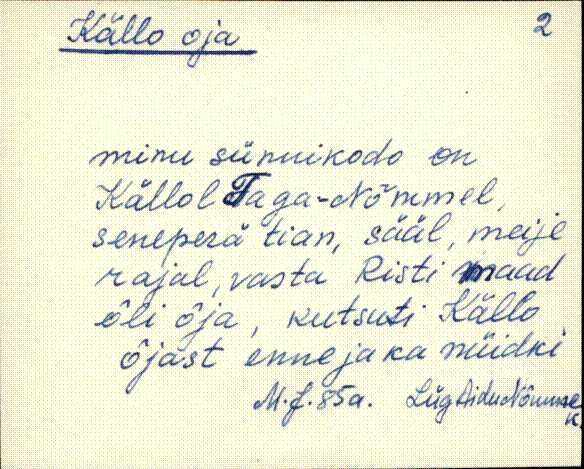 Källo oja 2
minu sünnikodo on
Källol Taga-Nõmmel,
seneperä tian, sääl, meije
rajal, vasta Risti maad
õli õja, kutsuti Källo
õjast enne ja ka nüidki
M.J. 85a. Lüg Aidu Nõmme
k.